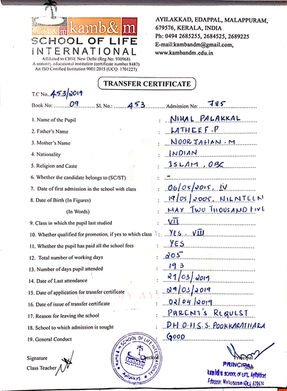 kamb&m
SCHOOL OF LIFE
INTERNATIONAL
Affiliated to CBSE New Delhi (Reg No: 930968)
A statutory educational institution (certificate number 8487)
An ISO Certified Institution 9001:2015 (UCQ: 1701227)
AYILAKKAD, EDAPPAL, MALAPPURAM,
679576, KERALA, INDIA
Ph: 0494 2685255, 2684525, 2689225
E-mail:kambandm@gmail.com,
www.kambandm.edu.in
TRANSFER CERTIFICATE
T.C No. 453/2019
Book No: 09 Sl. No.: 453 Admission No: 785
1. Name of the Pupil : NIHAL PALAKKAL
2. Father's Name : LATHEEF.P
3. Mother's Name : NOORJAHAN.M
4. Nationality : INDIAN
5. Religion and Caste : ISLAM, OBC
6. Whether the candidate belongs to (SC/ST) : -
7. Date of first admission in the school with class : 06/05/2015, IV
8. Date of Birth (In Figures) : 19/05/2005, NINTEEN
(In Words) MAY TWO THOUSAND FIVE
9. Class in which the pupil last studied : VII
10. Whether qualified for promotion, if yes to which class : YES, VIII
11. Whether the pupil has paid all the school fees : YES
12. Total number of working days : 205
13. Number of days pupil attended : 193
14. Date of Last attendance : 21/03/2019
15. Date of application for transfer certificate : 29/03/2019
16. Date of issue of transfer certificate : 02/04/2019
17. Reason for leaving the school : PARENT'S REQUEST
18. School to which admission is sought : DHOHSS POOKKARATHARA
19. General Conduct : GOOD
Signature
Class Teacher
PRINCIPAL